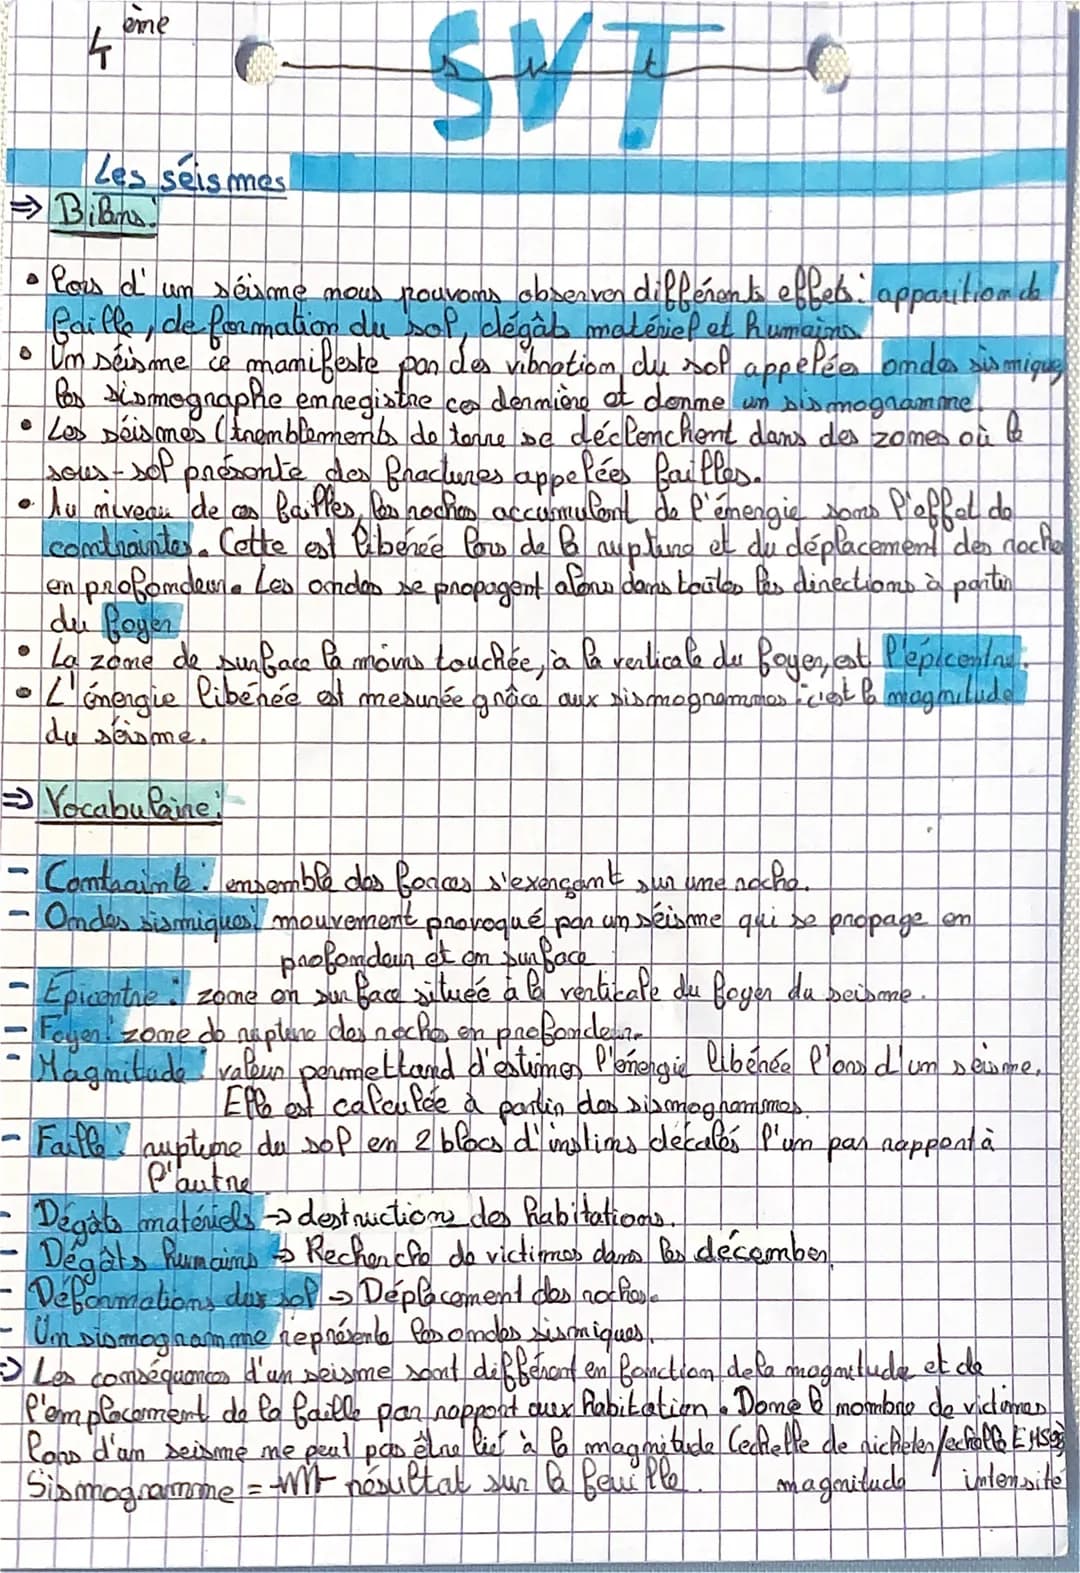 4 ème
SVT
s v t
Les séismes
⇒ Bilans:
• Lors d'un séisme nous pouvons observer différents effets: apparition de
faille, de formation du sol, dégâts matériel et humains
• Un séisme ce manifeste par des vibration du sol appelées ondes sismique
les sismographe enregistre ces dernière et donne un sismogramme.
• Les séismes (tremblements de terre se déclenchent dans des zones où le
sous-sol présente des fractures appelées failles.
• Au niveau de ces failles, les roches accumulent de l'énergie sons l'effet de
contraintes. Cette est libérée lors de la rupture et du déplacement des roche
en profondeur. Les ondes se propagent alors dans toutes les directions à partir
du foyer
• La zone de surface la moins touchée, à la verticale du foyer, est l'épicentre.
• L'énergie libérée est mesurée grâce aux sismogrammes : c'est la magnitude
du séisme.
⇒ Vocabulaire:
- Contrainte : ensemble des forces s'exerçant sur une roche.
- Ondes sismiques: mouvement provoqué par un séisme qui se propage en
profondeur et en surface
- Epicentre : zone en surface située à la verticale du foyer du seisme.
- Foyer: zone de rupture des roches en profondeur.
- Magnitude : valeur permettand d'estimer l'énergie libérée l'ors d'un séisme.
Elle est calculée à partir des sismogrammes.
- Faille : rupture du sol en 2 blocs d'instins décalés l'un par rapport à
l'autre
- Dégâts matériels → destructions des habitations.
- Dégâts humains → Recherche de victimes dans les décomber.
- Déformations des sol → Déplacement des roches.
- Un sismogramme représente les ondes sismiques.
⇒ Les conséquences d'un seisme sont différent en fonction de la magnitude et de
l'emplacement de la faille par rapport aux habitation. Donc le nombre de victimes
lors d'un seisme ne peut pas être lié à la magnitude (echelle de richeter/echelle EMS98
Sismogramme = résultat sur la feuille. magnitude intensité